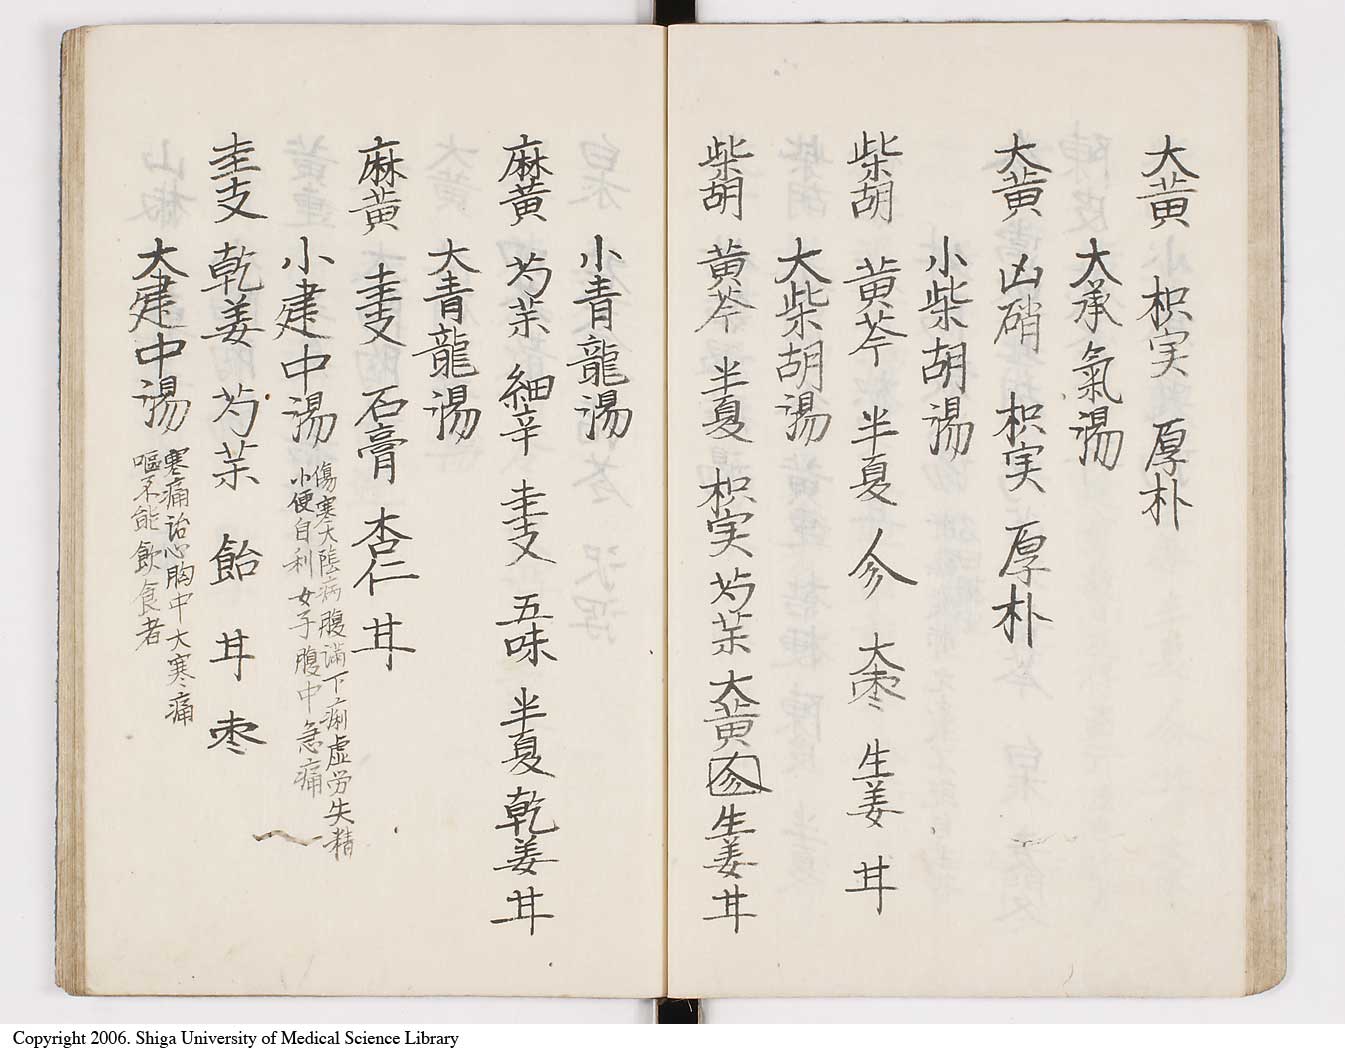 大黄 枳実 厚朴
大承氣湯
大黄 凶硝 枳実 厚朴
小柴胡湯
柴胡 黄芩 半夏 人参 大棗 生姜 甘
大柴胡湯
柴胡 黄芩 半夏 枳実 芍薬 大黄 参 生姜 甘
小青龍湯
麻黄 芍薬 細辛 圭支 五味 半夏 乾姜 甘
大青龍湯
麻黄 圭支 石膏 杏仁 甘
小建中湯
傷寒大陰病腹満下痢虚労失精
小便自利女子腹中急痛
圭支 乾姜 芍薬 飴 甘 棗
大建中湯
寒痛治心胸中大寒痛
嘔不能飲食者
Copyright 2006. Shiga University of Medical Science Library